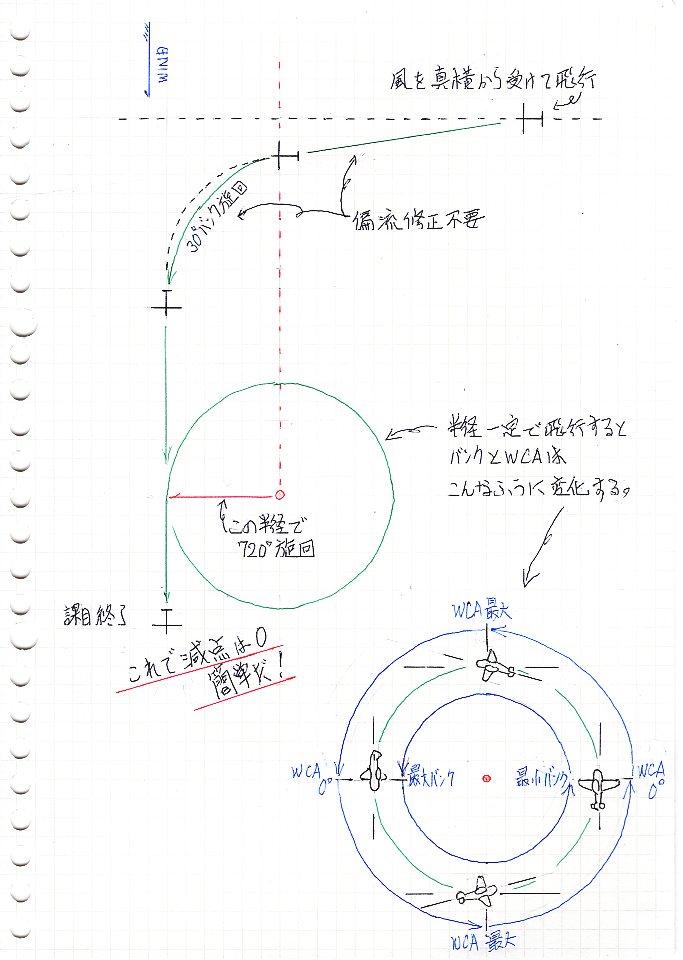 WIND
風を真横から受けて飛行
30°バンク旋回
偏流修正不要
半径一定で飛行すると
バンクとWCAは
こんなふうに変化する。
この半径で
720°旋回
課目終了
これで減点は0
簡単だ！
WCA最大
WCA
0°
最大バンク
最小バンク
WCA
0°
WCA最大